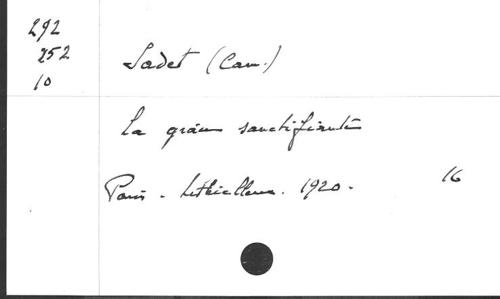 292
252
10
Sadet (Cam.)
La grâce sanctifiante
Paris - Lethielleux. 1920.
16